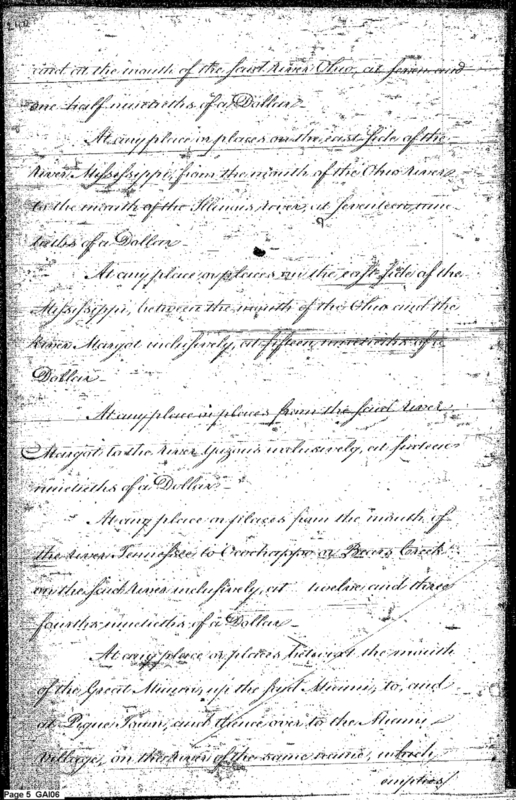 and at the mouth of the said River Ohio, at seven and
one half ninetieths of a Dollar.
At any place or places on the east side of the
River Mississippi, from the mouth of the Ohio River
to the mouth of the Illinois River, at seventeen nine
tieths of a Dollar.
At any place or places on the east side of the
Mississippi, between the mouth of the Ohio and the
River Margot inclusively, at fifteen ninetieths of a
Dollar.
At any place or places from the said River
Margot to the River Yazous inclusively, at sixteen
ninetieths of a Dollar.
At any place or places from the mouth of
the River Tennessee to Ocochappo or Bears Creek
on the said River inclusively, at twelve and three
fourths ninetieths of a Dollar.
At any place or places betwixt the mouth
of the Great Miami, up the said Miami, to, and
at Pique Town, and thence over to the Miami
Village, on the River of the same name, which
empties/
Page 5 GAI06